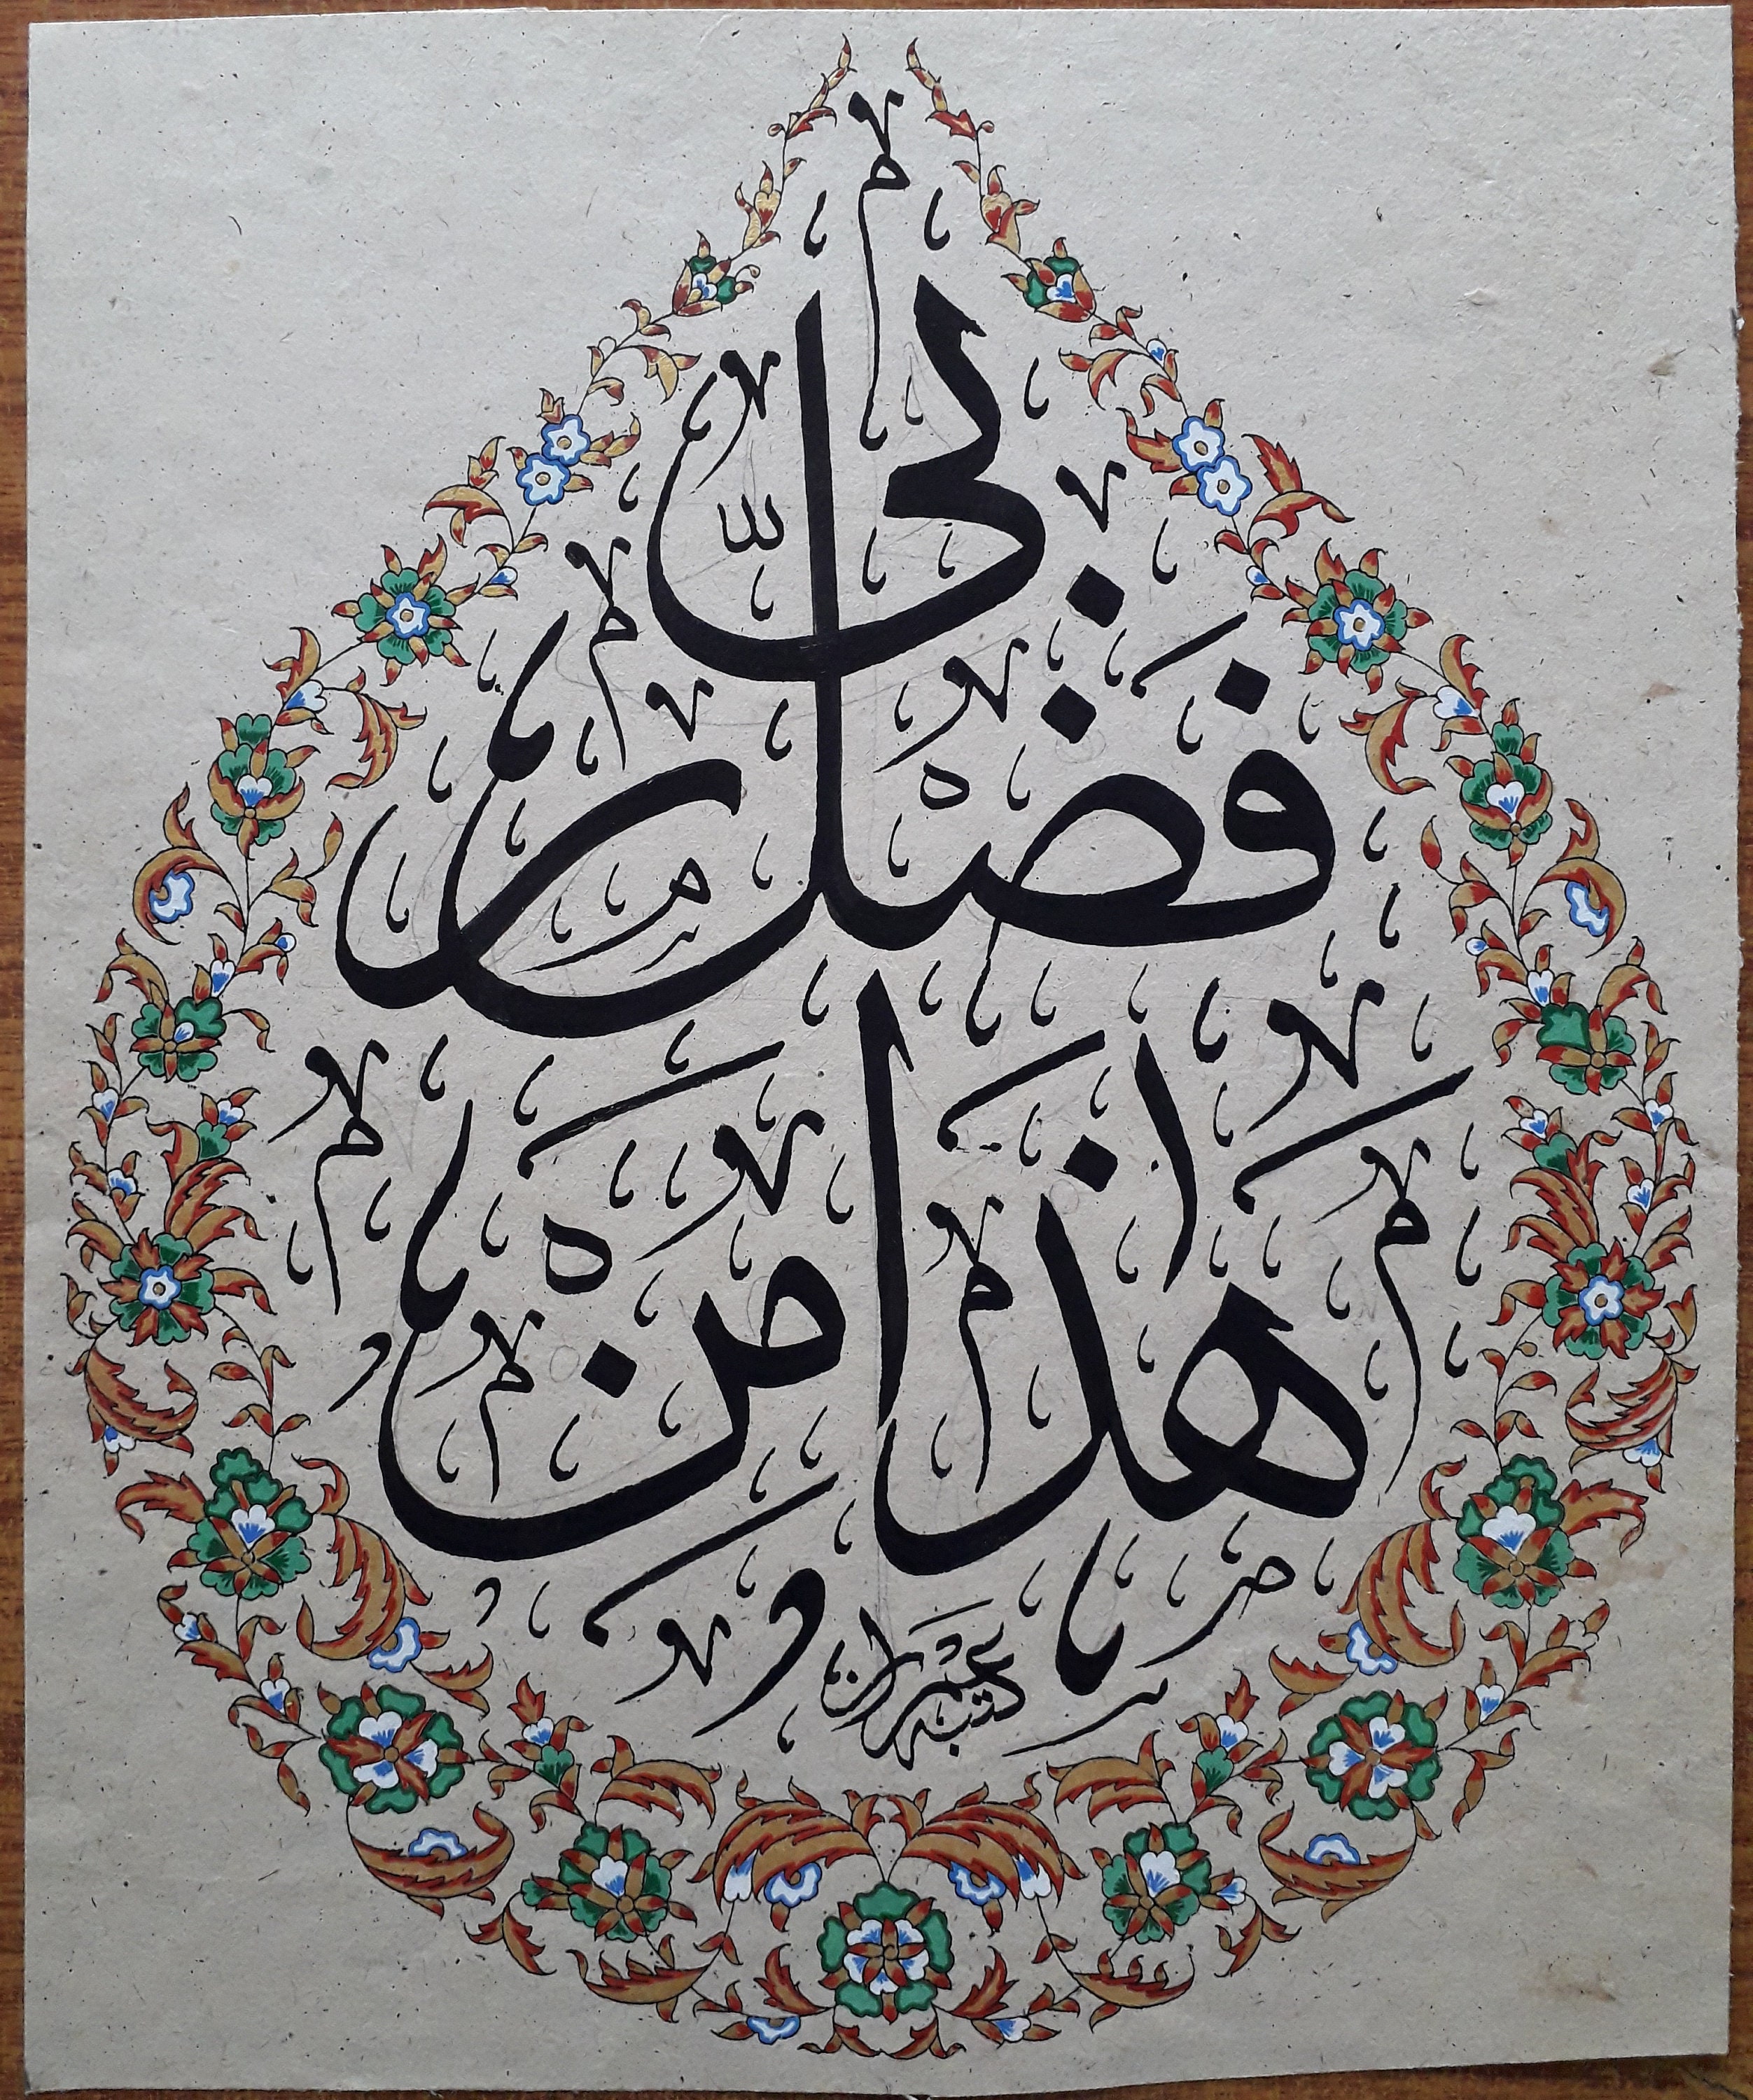 هذا من
فضل ر
بي
كتبه عمران